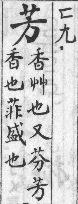 芳
ㄈㄤ
香艸也又芬芳
香也菲盛也